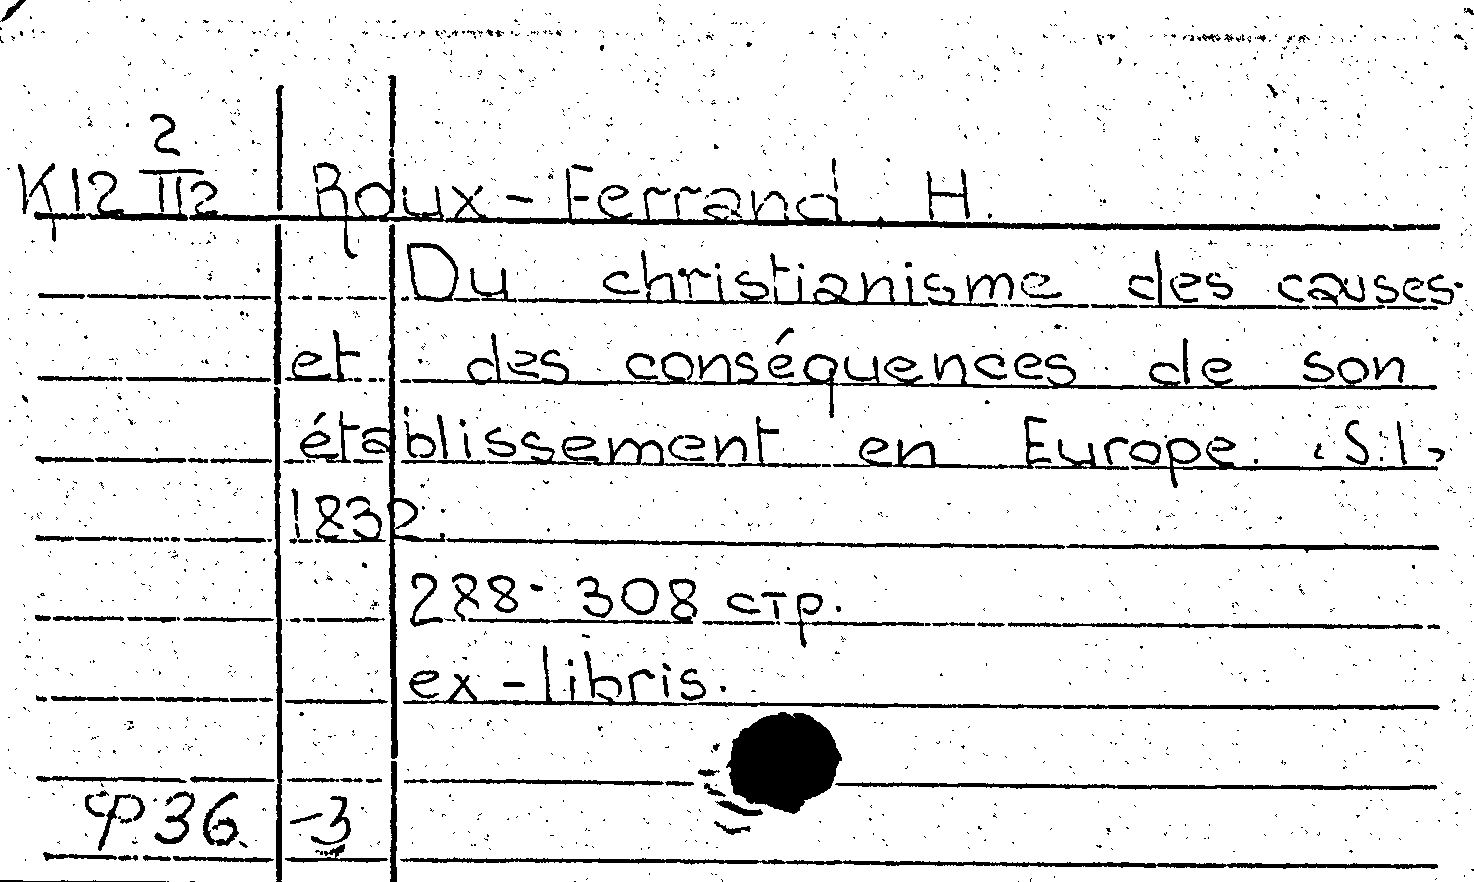 K12 2/II2 Roux-Ferrand, H.
Du christianisme des causes
et des conséquences de son
établissement en Europe. <S.l>
1832.
288-308 стр.
ex-libris.
Ф36 -3